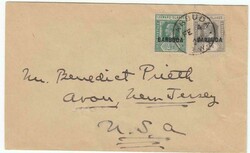 BARBUDA BARBUDA
Mr. Benedict
Avon New Jersey
U.S.a